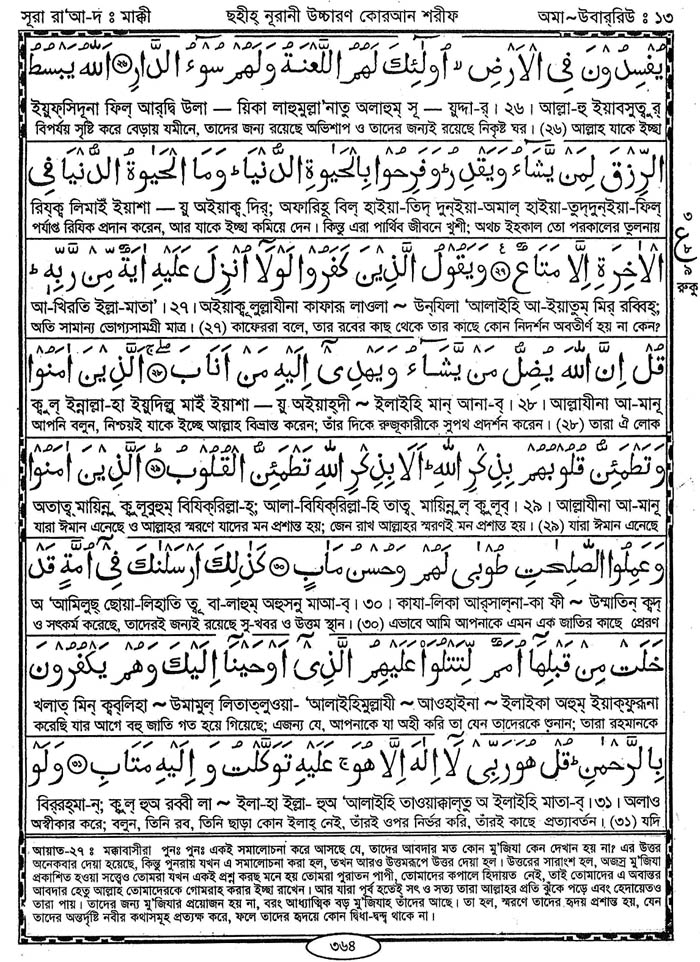 সূরা রা‘আ-দ ঃ মাক্কী ছহীহ্ নূরানী উচ্চারণ কোরআন শরীফ অমা~উবার্‌রিউ ঃ ১৩
يُفْسِدُوْنَ فِى الْاَرْضِ ۙ اُولٰٓئِكَ لَهُمُ اللَّعْنَةُ وَلَهُمْ سُوْٓءُ الدَّارِ ﴿২৫﴾ اَللهُ يَبْسُطُ
ইয়ুফ্‌সিদূনা ফিল্ আর্‌দ্বি উলা — য়িকা লাহুমুল্লা’নাতু অলাহুম্ সূ — য়ুদ্দা-র্। ২৬। আল্লা-হু ইয়াব্‌সুতুর্
বিপর্যয় সৃষ্টি করে বেড়ায় যমীনে, তাদের জন্য রয়েছে অভিশাপ ও তাদের জন্যই রয়েছে নিকৃষ্ট ঘর। (২৬) আল্লাহ যাকে ইচ্ছা
الرِّزْقَ لِمَنْ يَّشَآءُ وَيَقْدِرُ ؕ وَفَرِحُوْا بِالْحَيٰوةِ الدُّنْيَا ؕ وَمَا الْحَيٰوةُ الدُّنْيَا فِى
রিয্‌ক্ব লিমাইঁ ইয়াশা — য়ু অইয়াক্ব্ দির্; অফারিহূ বিল্ হাইয়া-তিদ্ দুন্‌ইয়া-অমাল্ হাইয়া-তুদ্‌দুন্‌ইয়া-ফিল্
পর্যাপ্ত রিযিক প্রদান করেন, আর যাকে ইচ্ছা কমিয়ে দেন। কিন্তু এরা পার্থিব জীবনে খুশী; অথচ ইহকাল তো পরকালের তুলনায়
৩
ع
৮
৯
রুকূ
الْاٰخِرَةِ اِلَّا مَتَاعٌ ﴿২৬﴾ وَيَقُوْلُ الَّذِيْنَ كَفَرُوْا لَوْلَآ اُنْزِلَ عَلَيْهِ اٰيَةٌ مِّنْ رَّبِّهٖ ؕ
আ-খিরতি ইল্লা-মাতা’। ২৭। অইয়াক্বূলুল্লাযীনা কাফারূ লাওলা ~ উন্‌যিলা ‘আলাইহি আ-ইয়াতুম্ মির্ রব্বিহ্;
অতি সামান্য ভোগ্যসামগ্রী মাত্র। (২৭) কাফেররা বলে, তার রবের কাছ থেকে তার কাছে কোন নিদর্শন অবতীর্ণ হয় না কেন?
قُلْ اِنَّ اللهَ يُضِلُّ مَنْ يَّشَآءُ وَيَهْدِىْٓ اِلَيْهِ مَنْ اَنَابَ ﴿২৭﴾ اَلَّذِيْنَ اٰمَنُوْا
ক্বুল্ ইন্নাল্লা-হা ইয়ুদিল্লু মাইঁ ইয়াশা — য়ু অইয়াহ্‌দী ~ ইলাইহি মান্ আনা-ব্। ২৮। আল্লাযীনা আ-মানূ
আপনি বলুন, নিশ্চয়ই যাকে ইচ্ছে আল্লাহ বিভ্রান্ত করেন; তাঁর দিকে রুজুকারীকে সুপথ প্রদর্শন করেন। (২৮) তারা ঐ লোক
وَتَطْمَئِنُّ قُلُوْبُهُمْ بِذِكْرِ اللهِ ؕ اَلَا بِذِكْرِ اللهِ تَطْمَئِنُّ الْقُلُوْبُ ﴿২৮﴾ اَلَّذِيْنَ اٰمَنُوْا
অতাত্ব্ মায়িন্নু ক্বুলূবুহুম্ বিযিক্‌রিল্লা-হ্; আলা-বিযিক্‌রিল্লা-হি তাত্ব্ মায়িন্নুল্ ক্বুলূব্। ২৯। আল্লাযীনা আ-মানূ
যারা ঈমান এনেছে ও আল্লাহর স্মরণে যাদের মন প্রশান্ত হয়; জেন রাখ আল্লাহর স্মরণই মন প্রশান্ত হয়। (২৯) যারা ঈমান এনেছে
وَعَمِلُوا الصّٰلِحٰتِ طُوْبٰى لَهُمْ وَحُسْنُ مَاٰبٍ ﴿২৯﴾ كَذٰلِكَ اَرْسَلْنٰكَ فِىْٓ اُمَّةٍ قَدْ
অ ‘আমিলুছ্ ছোয়া-লিহাতি ত্বূ বা-লাহুম্ অহুসনু মাআ-ব্। ৩০। কাযা-লিকা আর্‌সাল্‌না-কা ফী ~ উম্মাতিন্ ক্বদ্
ও সৎকর্ম করেছে, তাদেরই জন্যই রয়েছে সু-খবর ও উত্তম স্থান। (৩০) এভাবে আমি আপনাকে এমন এক জাতির কাছে প্রেরণ
خَلَتْ مِنْ قَبْلِهَآ اُمَمٌ لِّتَتْلُوَاْ عَلَيْهِمُ الَّذِىْٓ اَوْحَيْنَآ اِلَيْكَ وَهُمْ يَكْفُرُوْنَ
খলাত্ মিন্ ক্বব্‌লিহা ~ উমামুল্ লিতাত্‌লুওয়া- ‘আলাইহিমুল্লাযী ~ আওহাইনা ~ ইলাইকা অহুম্ ইয়াক্‌ফুরূনা
করেছি যার আগে বহু জাতি গত হয়ে গিয়েছে; এজন্য যে, আপনাকে যা অহী করি তা যেন তাদেরকে শুনান; তারা রহমানকে
بِالرَّحْمٰنِ ؕ قُلْ هُوَ رَبِّىْ لَآ اِلٰهَ اِلَّا هُوَ ۚ عَلَيْهِ تَوَكَّلْتُ وَ اِلَيْهِ مَتَابِ ﴿৩০﴾ وَلَوْ
বির্‌রহমা-ন্; ক্বুল্ হুঅ রব্বী লা ~ ইলা-হা ইল্লা- হুঅ ‘আলাইহি তাওয়াক্কাল্‌তু অ ইলাইহি মাতা-ব্। ৩১। অলাও
অস্বীকার করে; বলুন, তিনি রব, তিনি ছাড়া কোন ইলাহ্ নেই, তাঁরই ওপর নির্ভর করি, তাঁরই কাছে প্রত্যাবর্তন। (৩১) যদি
আয়াত-২৭ ঃ মক্কাবাসীরা পুনঃ পুনঃ একই সমালোচনা করে আসছে যে, তাদের আবদার মত কোন মু‘জিযা কেন দেখান হয় না? এর উত্তর
অনেকবার দেয়া হয়েছে, কিন্তু পুনরায় যখন এ সমালোচনা করা হল, তখন আরও উত্তমরূপে উত্তর দেয়া হল। উত্তরের সারাংশ হল, অজস্র মু‘জিযা
প্রকাশিত হওয়া সত্ত্বেও তোমরা যখন একই প্রশ্ন করছ মনে হয় তোমরা পুরাতন পাপী, তোমাদের কপালে হিদায়ত নেই, তাই তোমাদের এ অবান্তর
আবদার হেতু আল্লাহ তোমাদেরকে গোমরাহ করার ইচ্ছা রাখেন। আর যারা পূর্ব হতেই সৎ ও সত্য তারা আল্লাহর প্রতি ঝুঁকে পড়ে এবং হেদায়েতও
তারা পায়। তাদের জন্য মু‘জিযার প্রয়োজন হয় না, বরং আধ্যাত্মিক বড় মু‘জিযাই তাঁদের আছে। তা হল, স্মরণে তাদের হৃদয় প্রশান্ত হয়, যেন
তাদের অন্তর্দৃষ্টি নবীর কথাসমূহ প্রত্যক্ষ করে, ফলে তাদের হৃদয়ে কোন দ্বিধা-দ্বন্দ্ব থাকে না।
৩৬৪